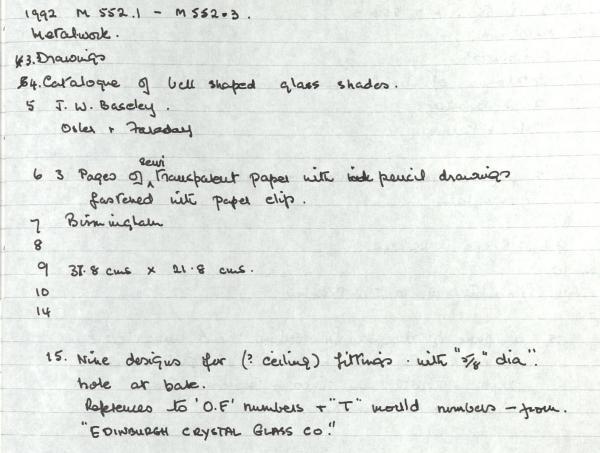 1992 M 552.1 - M 552.3.
Metalwork.
3. Drawings
4. Catalogue of bell shaped glass shades.
5 J. W. Baseley.
Osler + Faraday
semi
6 3 Pages of transparent paper with pencil drawings
fastened with paper clip.
7 Birmingham
8
9 37.8 cms × 21.8 cms.
10
14
15. Nine designs for (? ceiling) fittings. with "5/8" dia".
hole at base.
References to 'O.F' numbers + "T" mould numbers - from.
"EDINBURGH CRYSTAL GLASS CO."